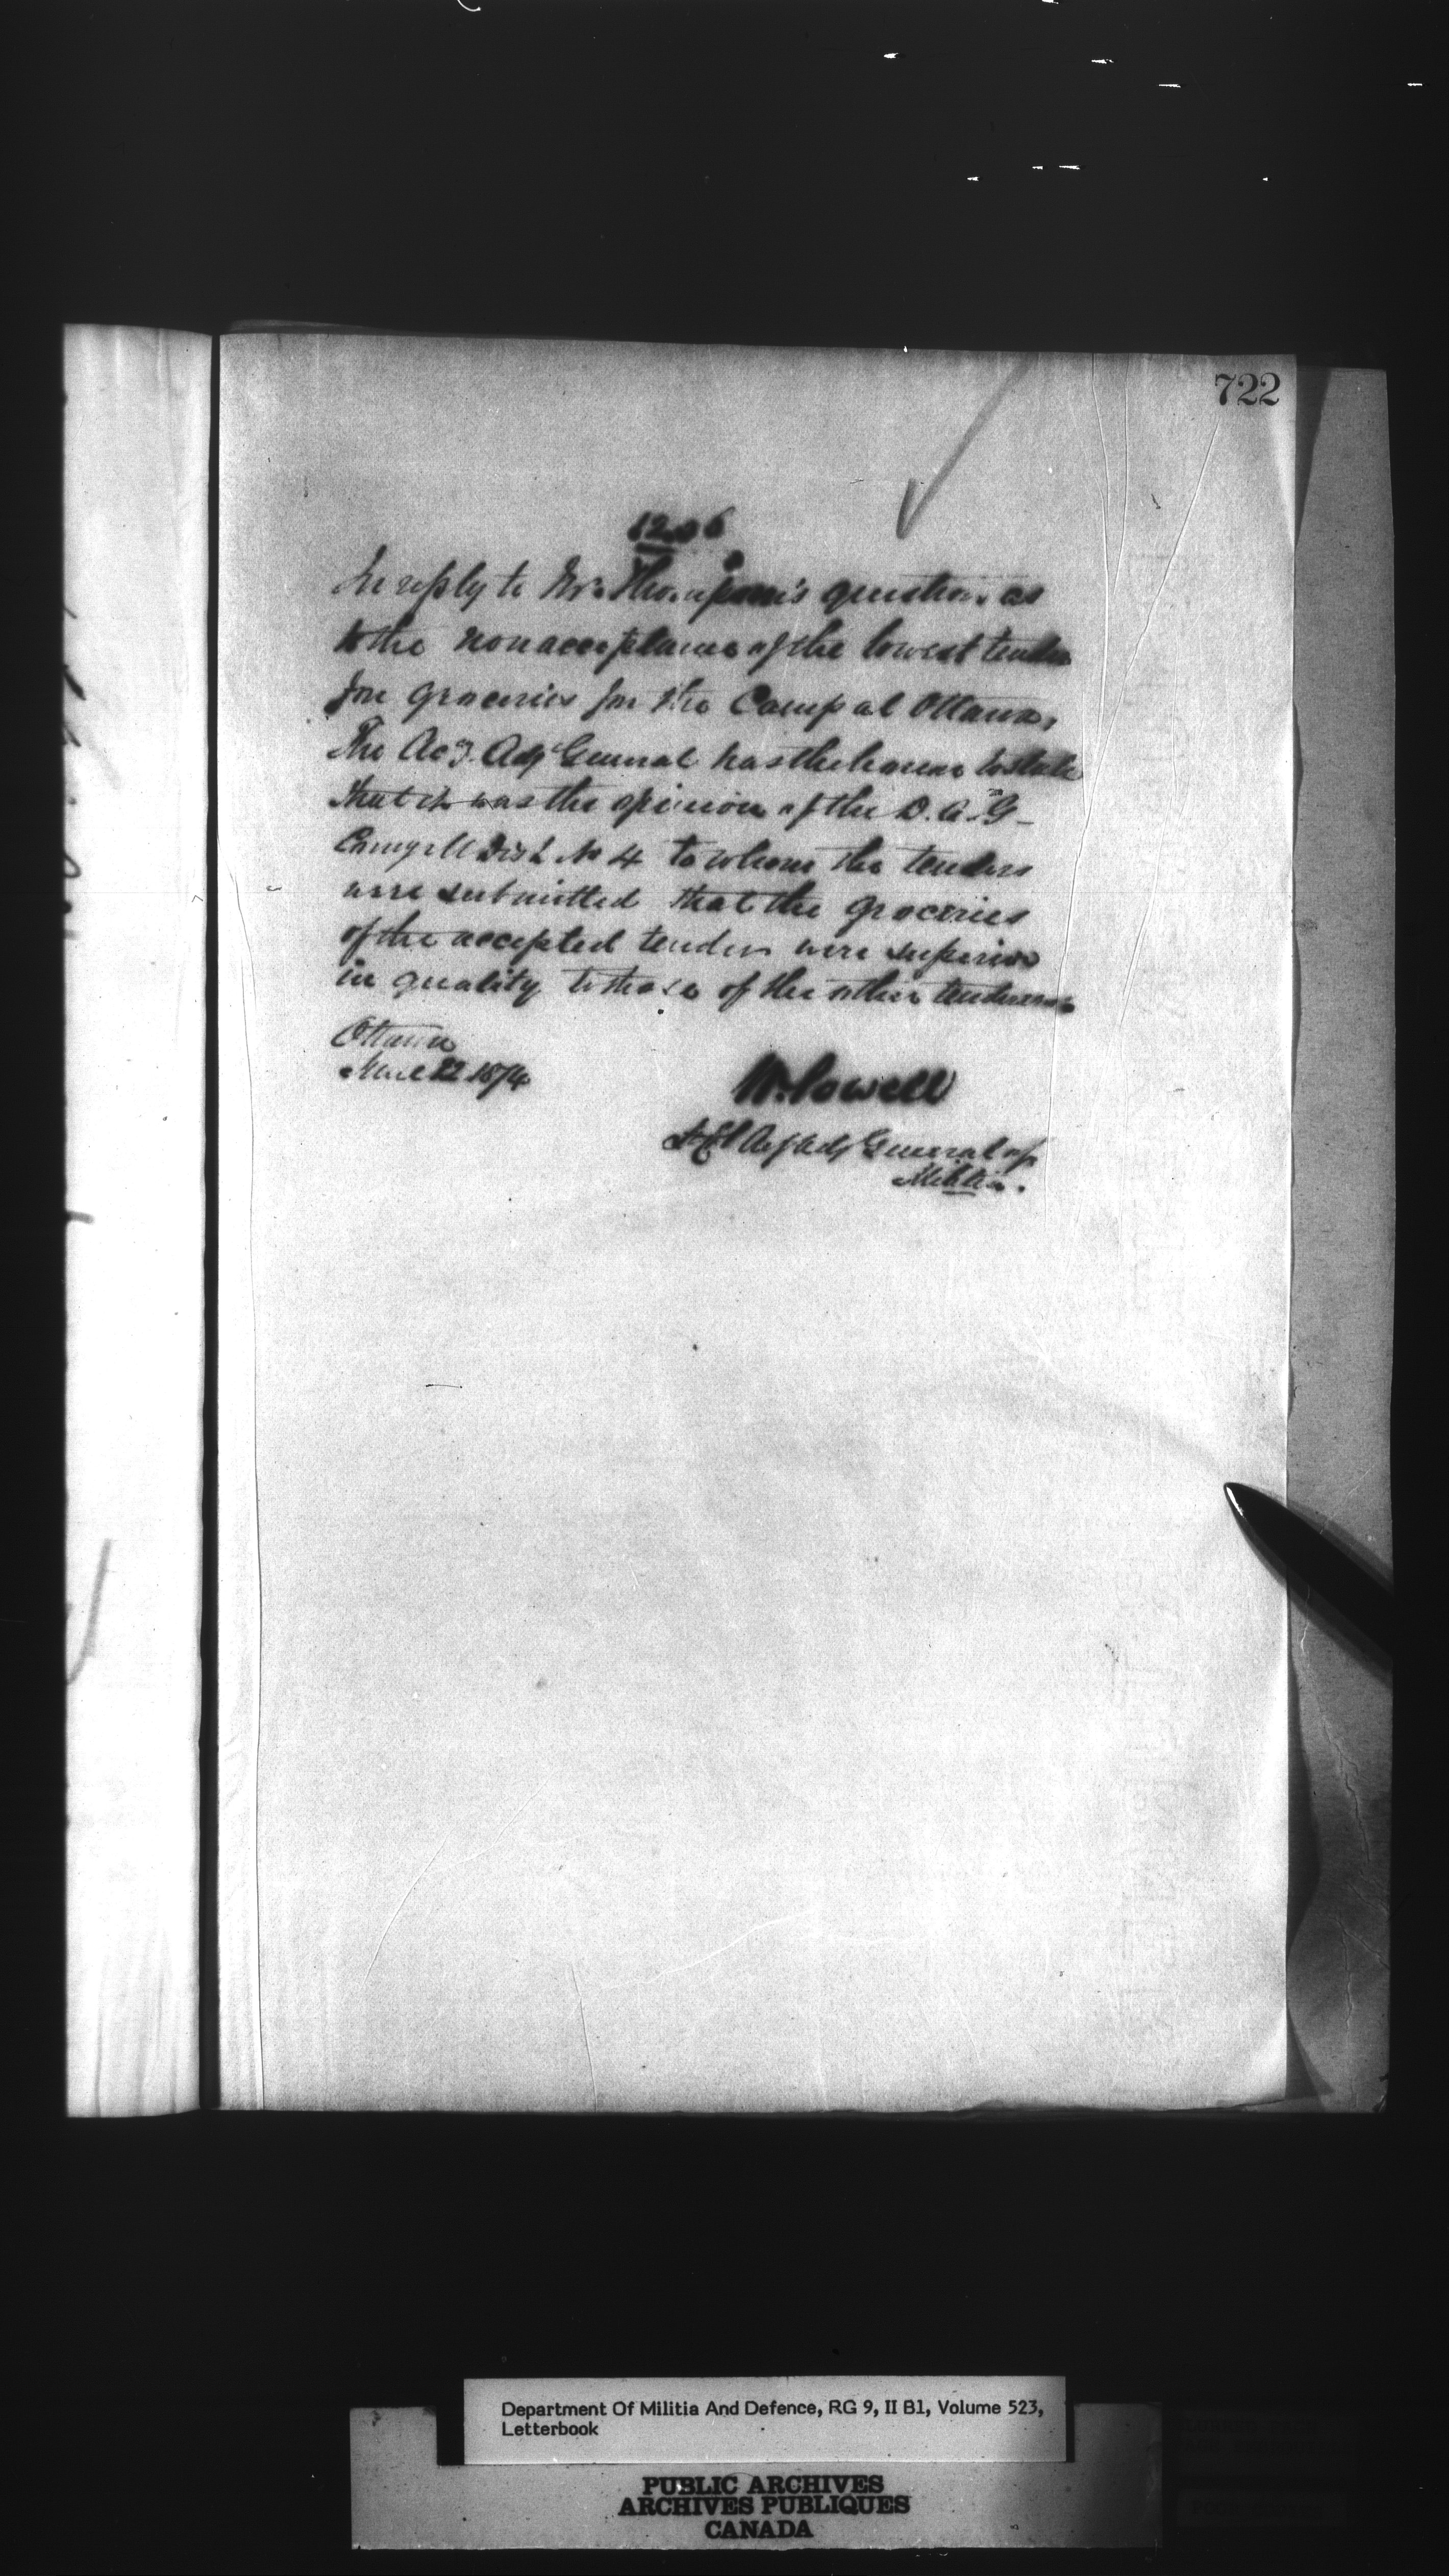 722
1206
In reply to Mr. Thompson's question as
to the non acceptance of the lowest tender
for groceries for the Camp at Ottawa,
The Actg. Adj General has the honor to state
that it was the opinion of the D.A.G.
Comg Mil Dist No 4 to whom the tenders
were submitted that the groceries
of the accepted tender were superior
in quality to those of the other
Ottawa
June 22 1874
W. Powell
Lt Col Actg Adj General of
Militia.
Department Of Militia And Defence, RG 9, II B1, Volume 523,
Letterbook
PUBLIC ARCHIVES
ARCHIVES PUBLIQUES
CANADA